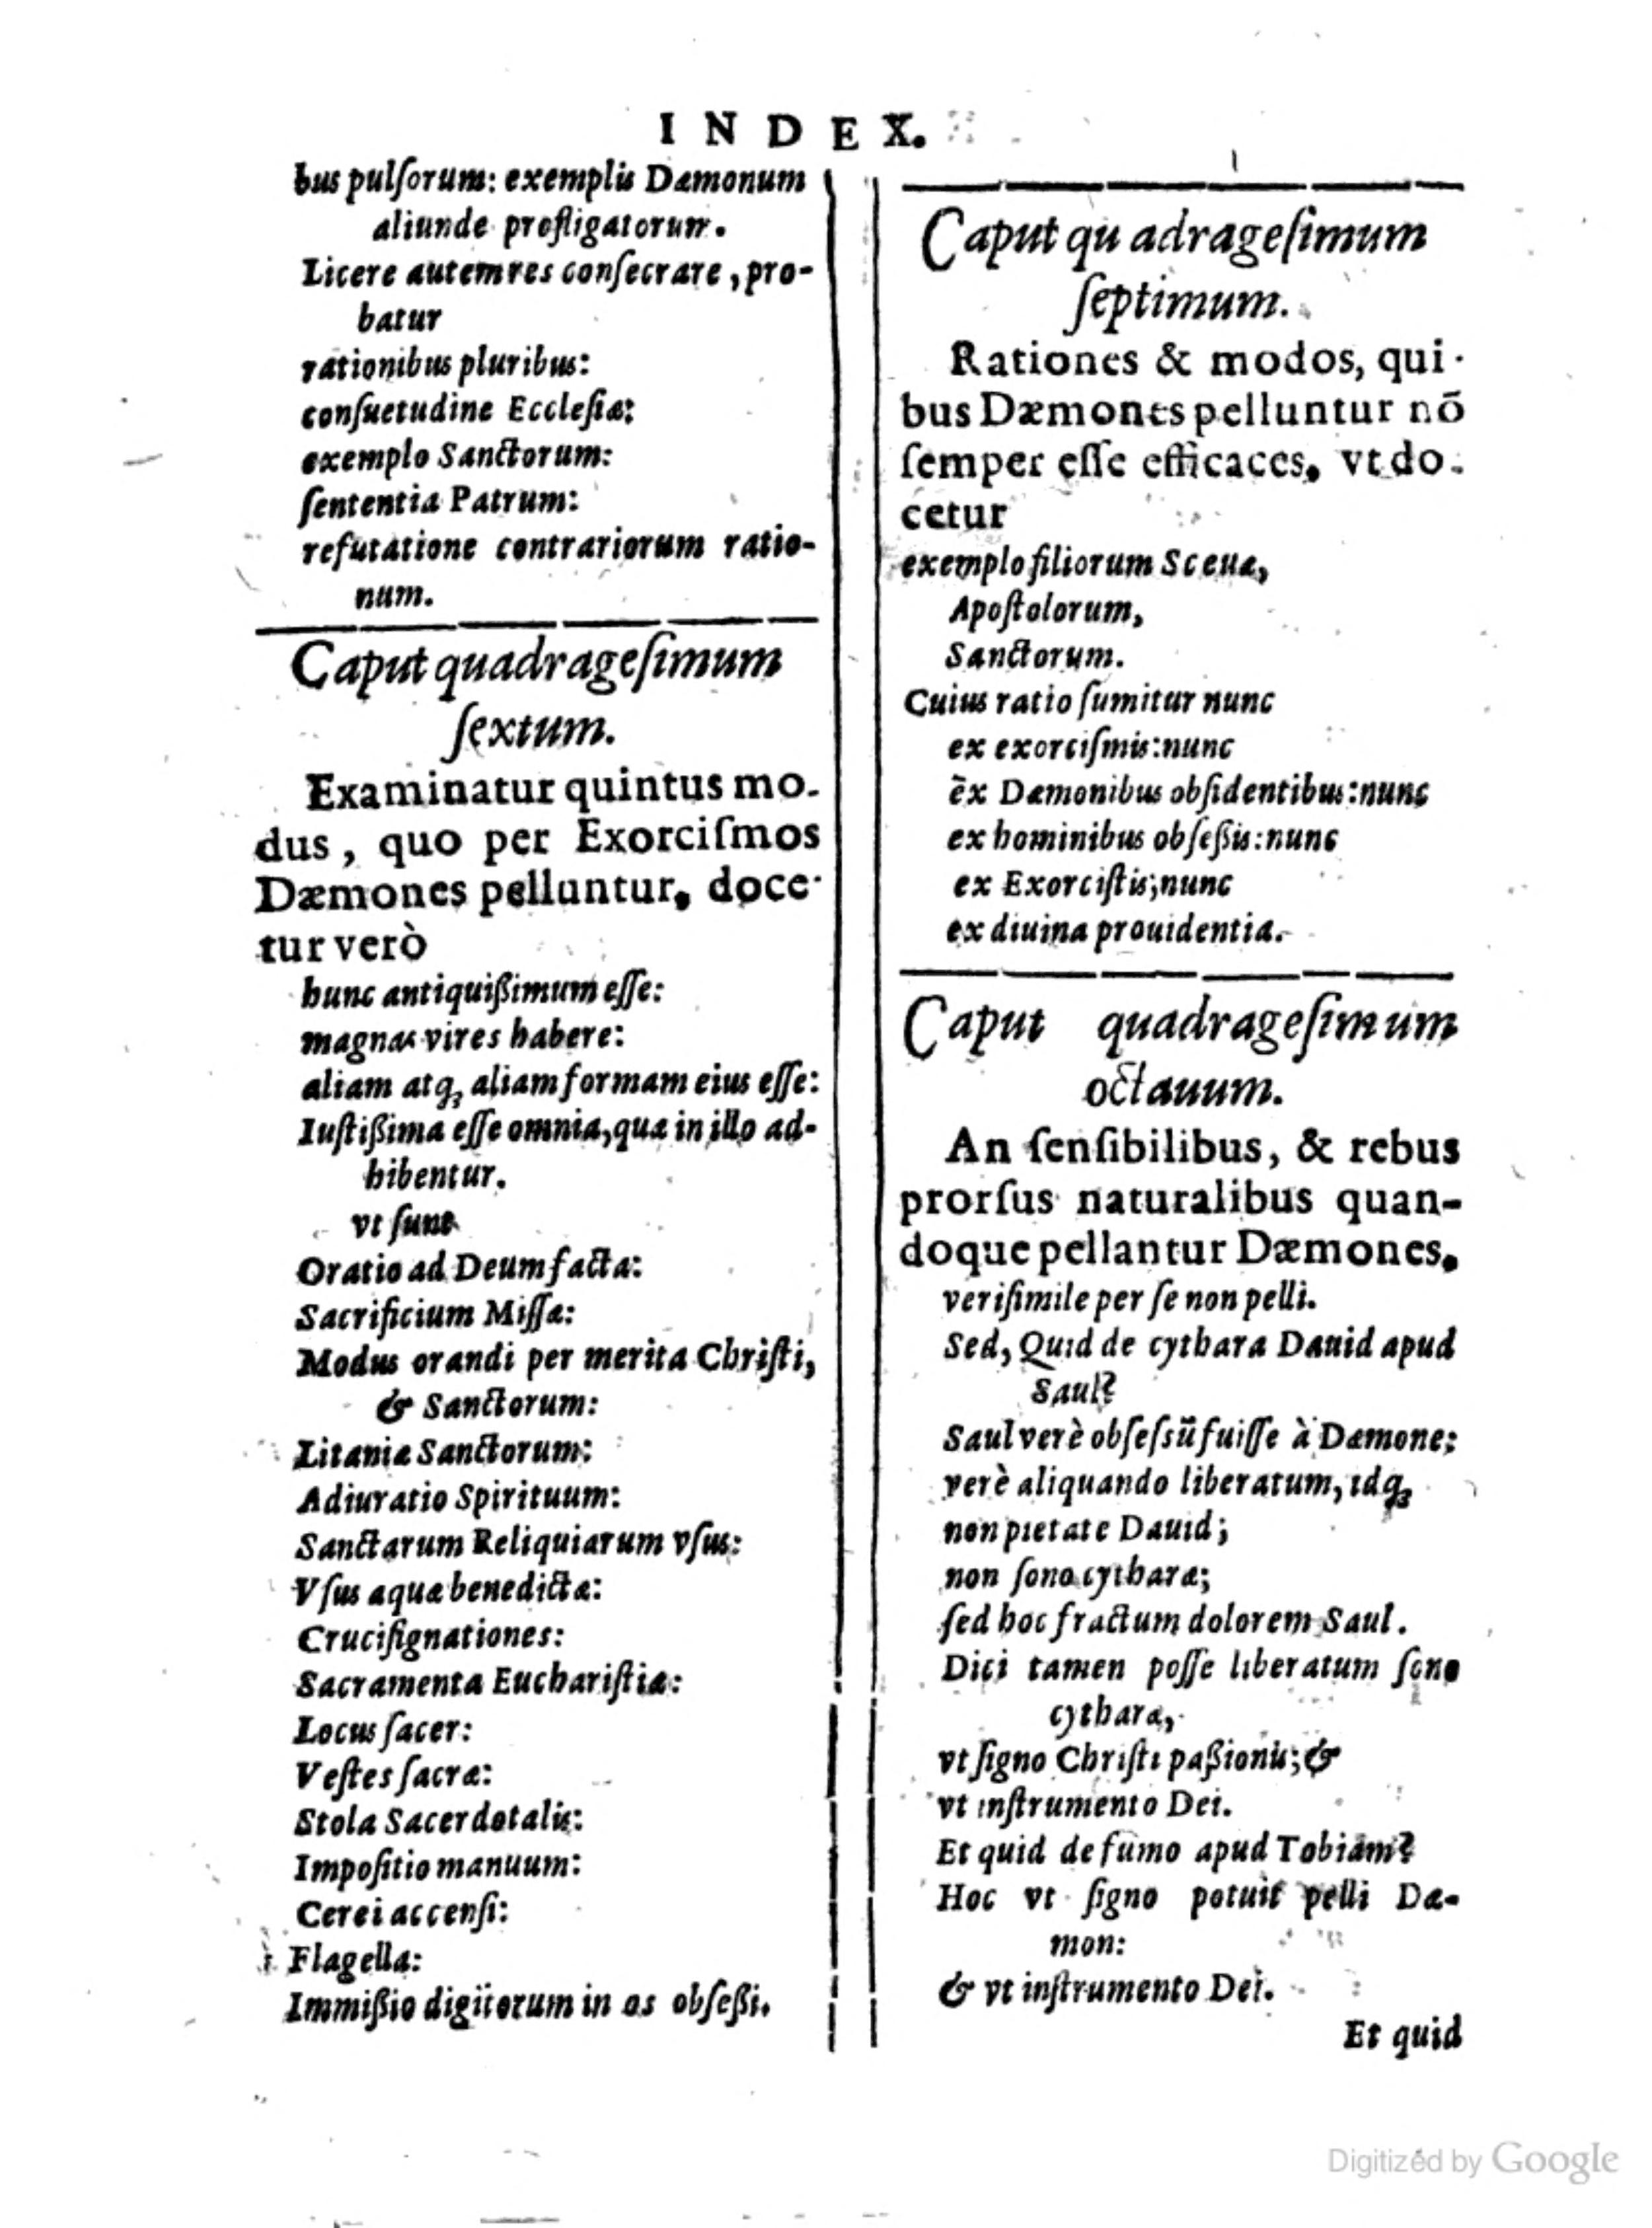 INDEX.
bus pulſorum: exemplis Dæmonum
aliunde profligatorum.
Licere autem res conſecrare, pro-
batur
rationibus pluribus:
conſuetudine Eccleſiæ:
exemplo Sanctorum:
ſententia Patrum:
refutatione contrariorum ratio-
num.
Caput quadrageſimum
ſextum.
Examinatur quintus mo-
dus, quo per Exorciſmos
Dæmones pelluntur, doce-
tur verò
hunc antiquißimum eſſe:
magnas vires habere:
aliam atq; aliam formam eius eſſe:
Iuſtißima eſſe omnia, quæ in illo ad-
hibentur.
vt ſunt
Oratio ad Deum facta:
Sacrificium Miſſæ:
Modus orandi per merita Chriſti,
& Sanctorum:
Litaniæ Sanctorum:
Adiuratio Spirituum:
Sanctarum Reliquiarum vſus:
Vſus aquæ benedictæ:
Cruciſignationes:
Sacramenta Euchariſtiæ:
Locus ſacer:
Veſtes ſacræ:
Stola Sacerdotalis:
Impoſitio manuum:
Cerei accenſi:
Flagella:
Immißio digitorum in os obſeßi.
Caput qu adrageſimum
ſeptimum.
Rationes & modos, qui-
bus Dæmones pelluntur nō
ſemper eſſe efficaces, vt do-
cetur
exemplo filiorum Sceuæ,
Apoſtolorum,
Sanctorum.
Cuius ratio ſumitur nunc
ex exorciſmis: nunc
ex Dæmonibus obſidentibus: nunc
ex hominibus obſeßis: nunc
ex Exorciſtis; nunc
ex diuina prouidentia.
Caput quadrageſimum
octauum.
An ſenſibilibus, & rebus
prorſus naturalibus quan-
doque pellantur Dæmones,
veriſimile per ſe non pelli.
Sed, Quid de cythara Dauid apud
Saul?
Saul verè obſeſsū fuiſſe à Dæmone;
verè aliquando liberatum, idq;
non pietate Dauid;
non ſono cytharæ;
ſed hoc fractum dolorem Saul.
Dici tamen poſſe liberatum ſono
cytharæ,
vt ſigno Chriſti paßionis; &
vt inſtrumento Dei.
Et quid de fumo apud Tobiam?
Hoc vt ſigno potuit pelli Dæ-
mon:
& vt inſtrumento Dei.
Et quid
Digitized by Google